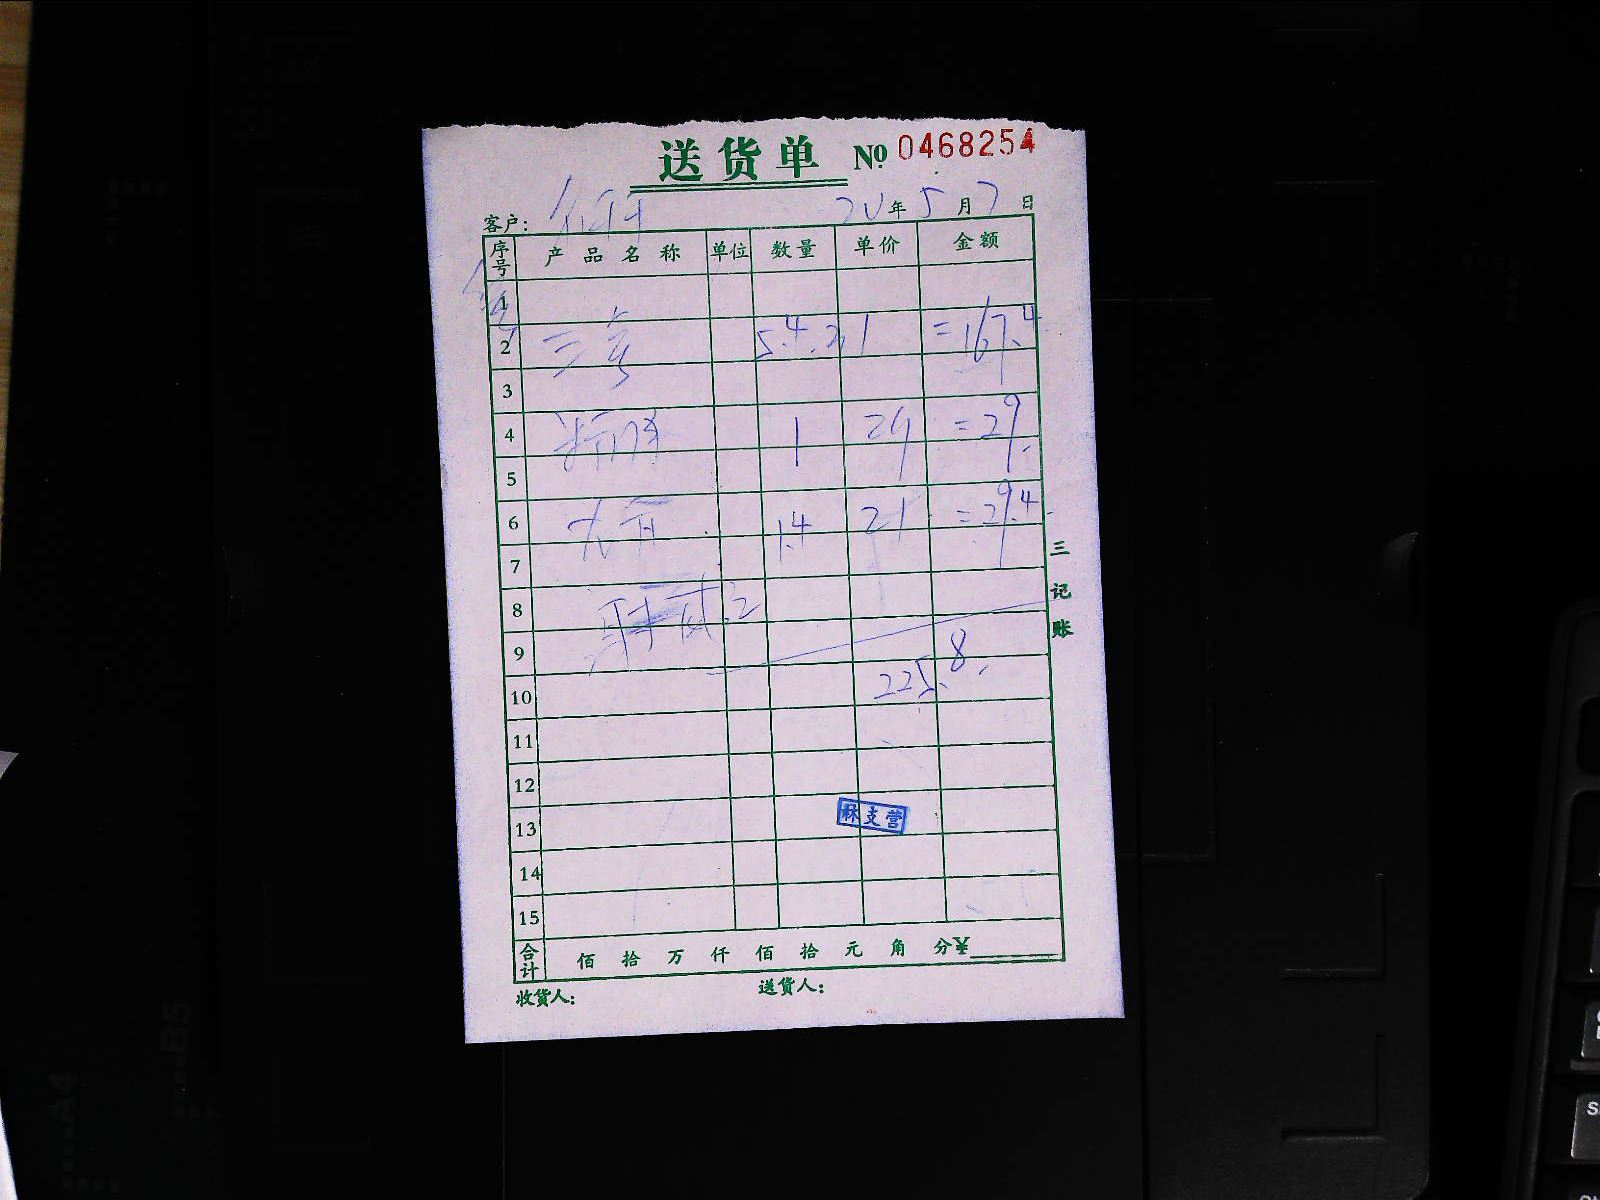 送货单 № 0468254
客户: 20年5月7日
序号 产品名称 单位 数量 单价 金额
1
2 三 5.4. 31 =167.4
3
4 1 29 =29.
5
6 大 1.4 21 =29.4
7
8
9
10 225.8
11
12
13 林支营
14
15
合计 佰 拾 万 仟 佰 拾 元 角 分¥
收货人: 送货人:
三记账